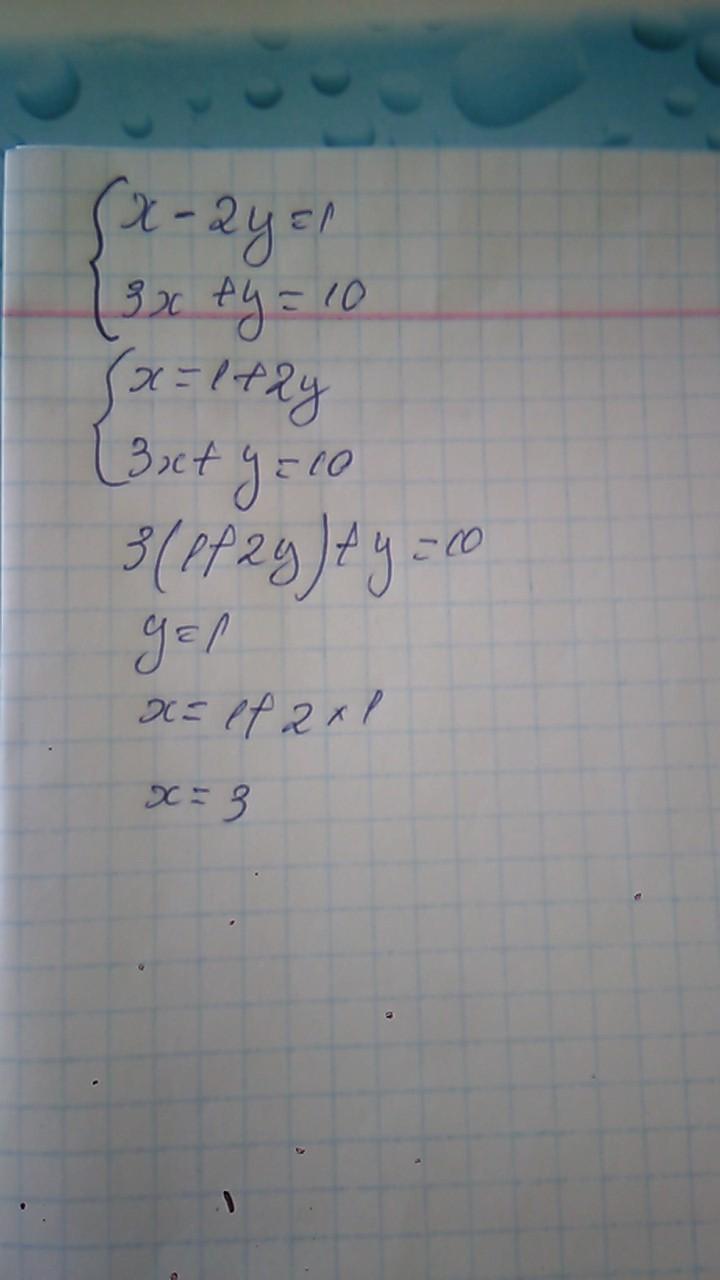 x - 2y = 1
3x + y = 10
x = 1 + 2y
3x + y = 10
3(1 + 2y) + y = 10
y = 1
x = 1 + 2 × 1
x = 3